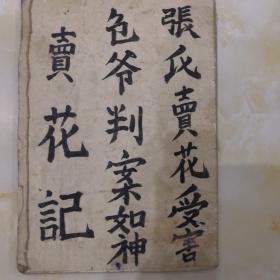 張氏賣花受害
色爷判案如神
賣花記